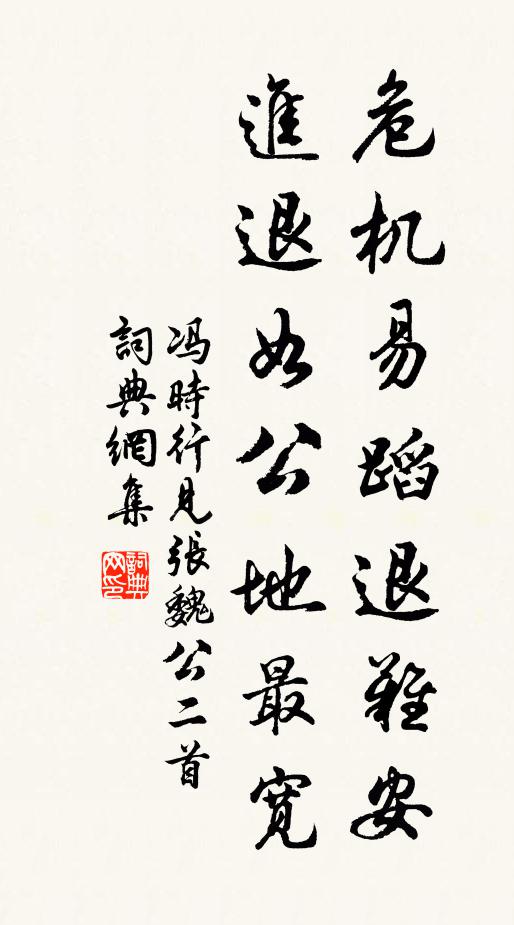 危机易蹈退難安
進退如公地最寬
冯時行見張魏公二首
詞典網集
詞典网印